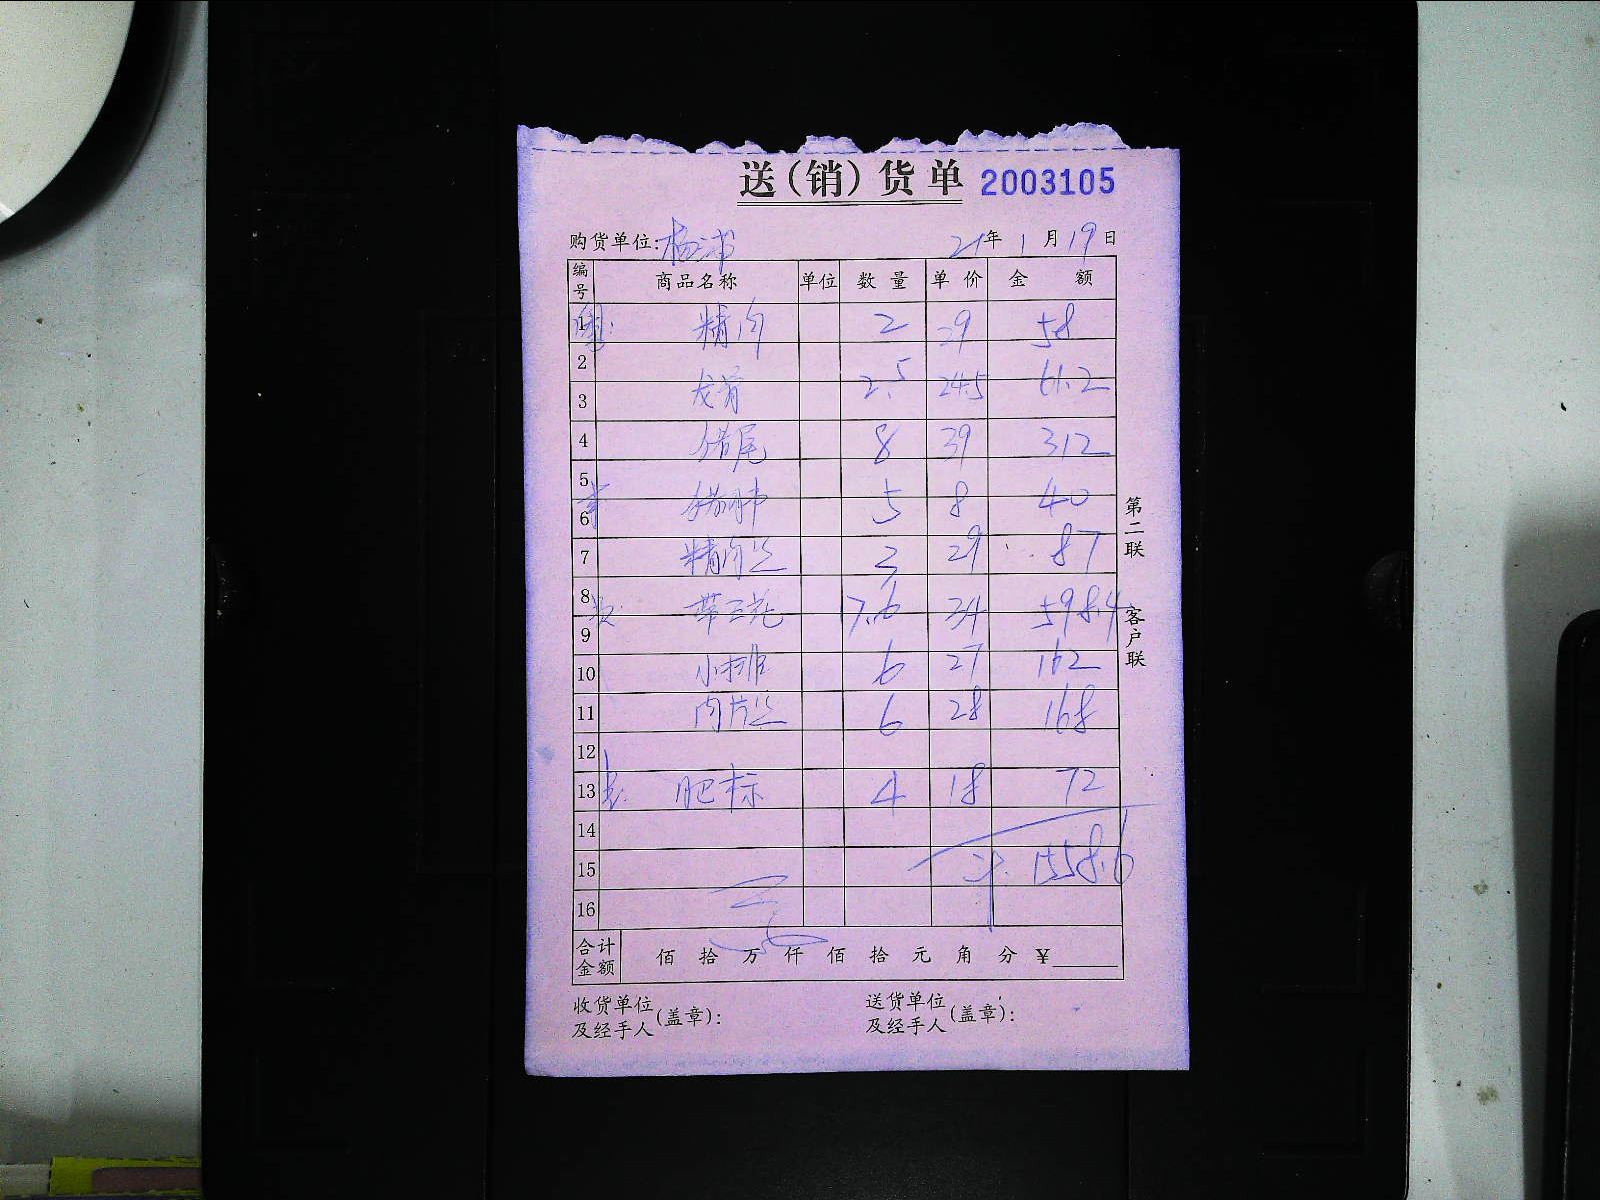 送(销)货单 2003105
购货单位:杨浦 21年1月19日
编号 商品名称 单位 数量 单价 金额
1 精肉 2 29 58
2
3 龙骨 2.5 24.5 61.2
4 猪尾 8 39 312
5
6 猪肺 5 8 40
7 精肉丝 3 29 87
8
9 带三花 17.6 34 598.4
10 小排 6 27 162
11 肉片丝 6 28 168
12
13 肥膘 4 18 72
14
15 计 1558.6
16
合计金额 佰 拾 万 仟 佰 拾 元 角 分 ¥
收货单位及经手人(盖章): 送货单位及经手人(盖章):
第二联 客户联